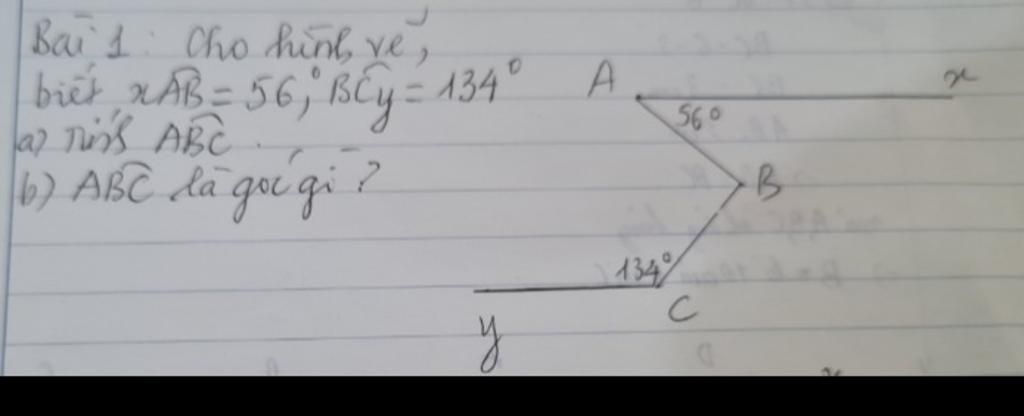 Bài 1: Cho hình vẽ,
biết xAB = 56°, BCy = 134°
a) Tính ABC.
b) ABC là góc gì?
A
x
56°
B
134°
C
y